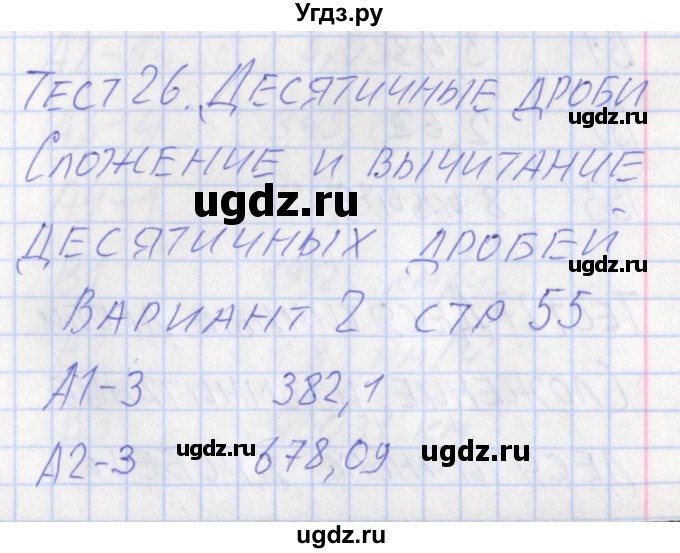 Угдз.ру
ТЕСТ 26. ДЕСЯТИЧНЫЕ ДРОБИ
ugdz.ru
СЛОЖЕНИЕ И ВЫЧИТАНИЕ
ugdz.ru
ДЕСЯТИЧНЫХ ДРОБЕЙ
ugdz.ru
ВАРИАНТ 2 СТР 55
А1-3 382,1
А2-3 678,09
ugdz.ru ugdz.ru
ugdz.ru